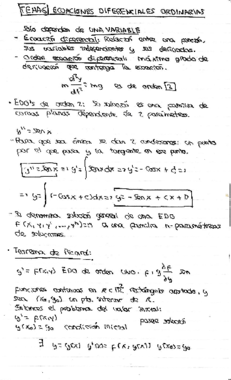 TEMA 5 ECUACIONES DIFERENCIALES ORDINARIAS
Sólo dependen de UNA VARIABLE
- Ecuación diferencial: Relación entre una función,
sus variables independientes y sus derivadas.
- Orden ecuación diferencial: máximo grado de
derivación que contenga la ecuación.
m d²y/dt² = mg es de orden 2
- EDO's de orden 2: Su solución es una familia de
curvas planas dependiente de 2 parámetros.
y'' = sen x
- Para que sea única se dan 2 condiciones: un punto
por el que pasa y la tangente en ese punto.
y'' = sen x → y' = ∫ sen dx → y' = - cos x + c →
→ y = ∫(-cos x + c)dx → y = - sen x + cx + D
- Se denomina solución general de una EDO
F(x, y, y', ..., yⁿ) = 0 a una familia n-paramétricas
de soluciones.
- Teorema de Picard:
y' = f(x,y) EDO de orden uno. f, ∂f/∂y son
funciones continuas en R ⊂ ℝ² rectángulo acotado, y
sea (x₀, y₀) un pto. interior de R.
Entonces el problema del valor inicial:
y' = f(x,y) posee solución
y(x₀) = y₀ condición inicial
∃ y = y(x) y'(x) = f(x, y(x)) y(x₀) = y₀